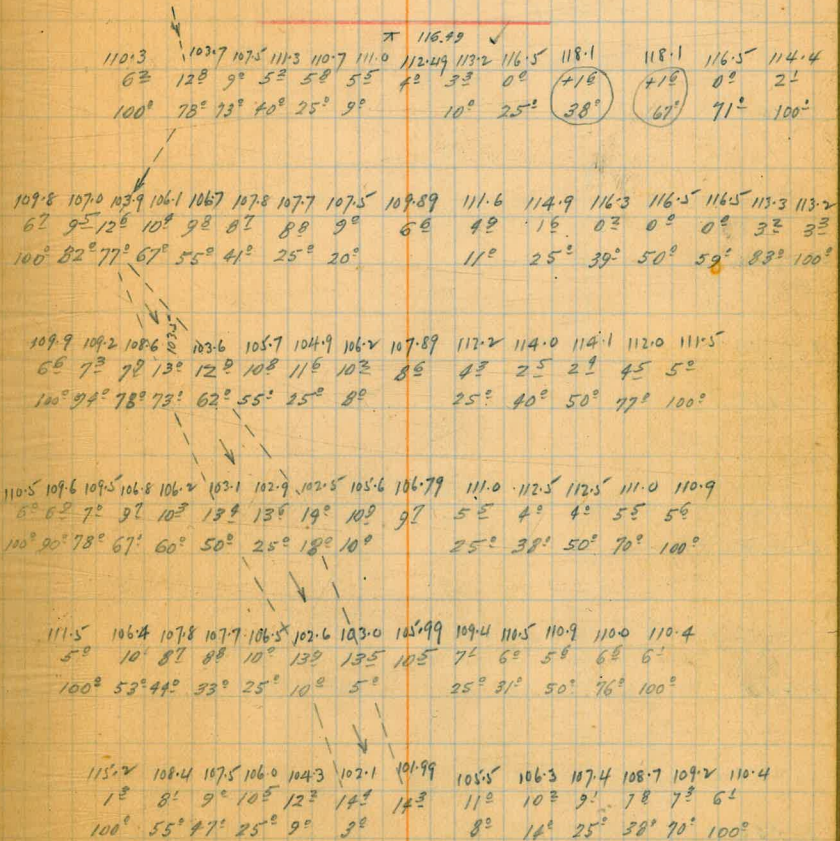 ⊼ 116.49 ✓
110.3 103.7 107.5 111.3 110.7 111.0 112.49 113.2 116.5 118.1 118.1 116.5 114.4
6² 12⁸ 9⁰ 5² 5⁸ 5⁵ 4⁰ 3³ 0⁰ +1⁶ +1⁶ 0⁰ 2¹
100⁰ 78⁰ 73⁰ 40⁰ 25⁰ 9⁰ 10⁰ 25⁰ 38⁰ 67⁰ 71⁰ 100⁰
109.8 107.0 103.9 106.1 106.7 107.8 107.7 107.5 109.89 111.6 114.9 116.3 116.5 116.5 113.3 113.2
6⁷ 9⁵ 12⁶ 10⁴ 9⁸ 8⁷ 8⁸ 9⁰ 6⁶ 4⁹ 1⁶ 0² 0⁰ 0⁰ 3² 3³
100⁰ 82⁰ 77⁰ 67⁰ 55⁰ 41⁰ 25⁰ 20⁰ 11⁰ 25⁰ 39⁰ 50⁰ 59⁰ 83⁰ 100⁰
109.9 109.2 108.6 103.5 103.6 105.7 104.9 106.2 107.89 112.2 114.0 114.1 112.0 111.5
6⁶ 7³ 7⁹ 13⁰ 12⁹ 10⁸ 11⁶ 10³ 8⁶ 4³ 2⁵ 2⁴ 4⁵ 5⁰
100⁰ 94⁰ 78⁰ 73⁰ 62⁰ 55⁰ 25⁰ 8⁰ 25⁰ 40⁰ 50⁰ 77⁰ 100⁰
110.5 109.6 109.5 106.8 106.2 103.1 102.9 102.5 105.6 106.79 111.0 112.5 112.5 111.0 110.9
6⁰ 6⁹ 7⁰ 9⁷ 10³ 13⁴ 13⁶ 14⁰ 10⁹ 9⁷ 5⁵ 4⁰ 4⁰ 5⁵ 5⁶
100⁰ 90⁰ 78⁰ 67⁰ 60⁰ 50⁰ 25⁰ 18⁰ 10⁰ 25⁰ 38⁰ 50⁰ 70⁰ 100⁰
111.5 106.4 107.8 107.7 106.5 102.6 103.0 105.99 109.4 110.5 110.9 110.0 110.4
5⁰ 10¹ 8⁷ 8⁸ 10⁰ 13⁹ 13⁵ 10⁵ 7¹ 6⁰ 5⁶ 6⁵ 6¹
100⁰ 53⁰ 44⁰ 33⁰ 25⁰ 10⁰ 5⁰ 25⁰ 31⁰ 50⁰ 76⁰ 100⁰
115.2 108.4 107.5 106.0 104.3 102.1 101.99 105.5 106.3 107.4 108.7 109.2 110.4
1³ 8¹ 9⁰ 10⁵ 12² 14⁴ 14³ 11⁰ 10² 9¹ 7⁸ 7³ 6¹
100⁰ 55⁰ 47⁰ 25⁰ 9⁰ 3⁰ 8⁰ 14⁰ 25⁰ 38⁰ 70⁰ 100⁰